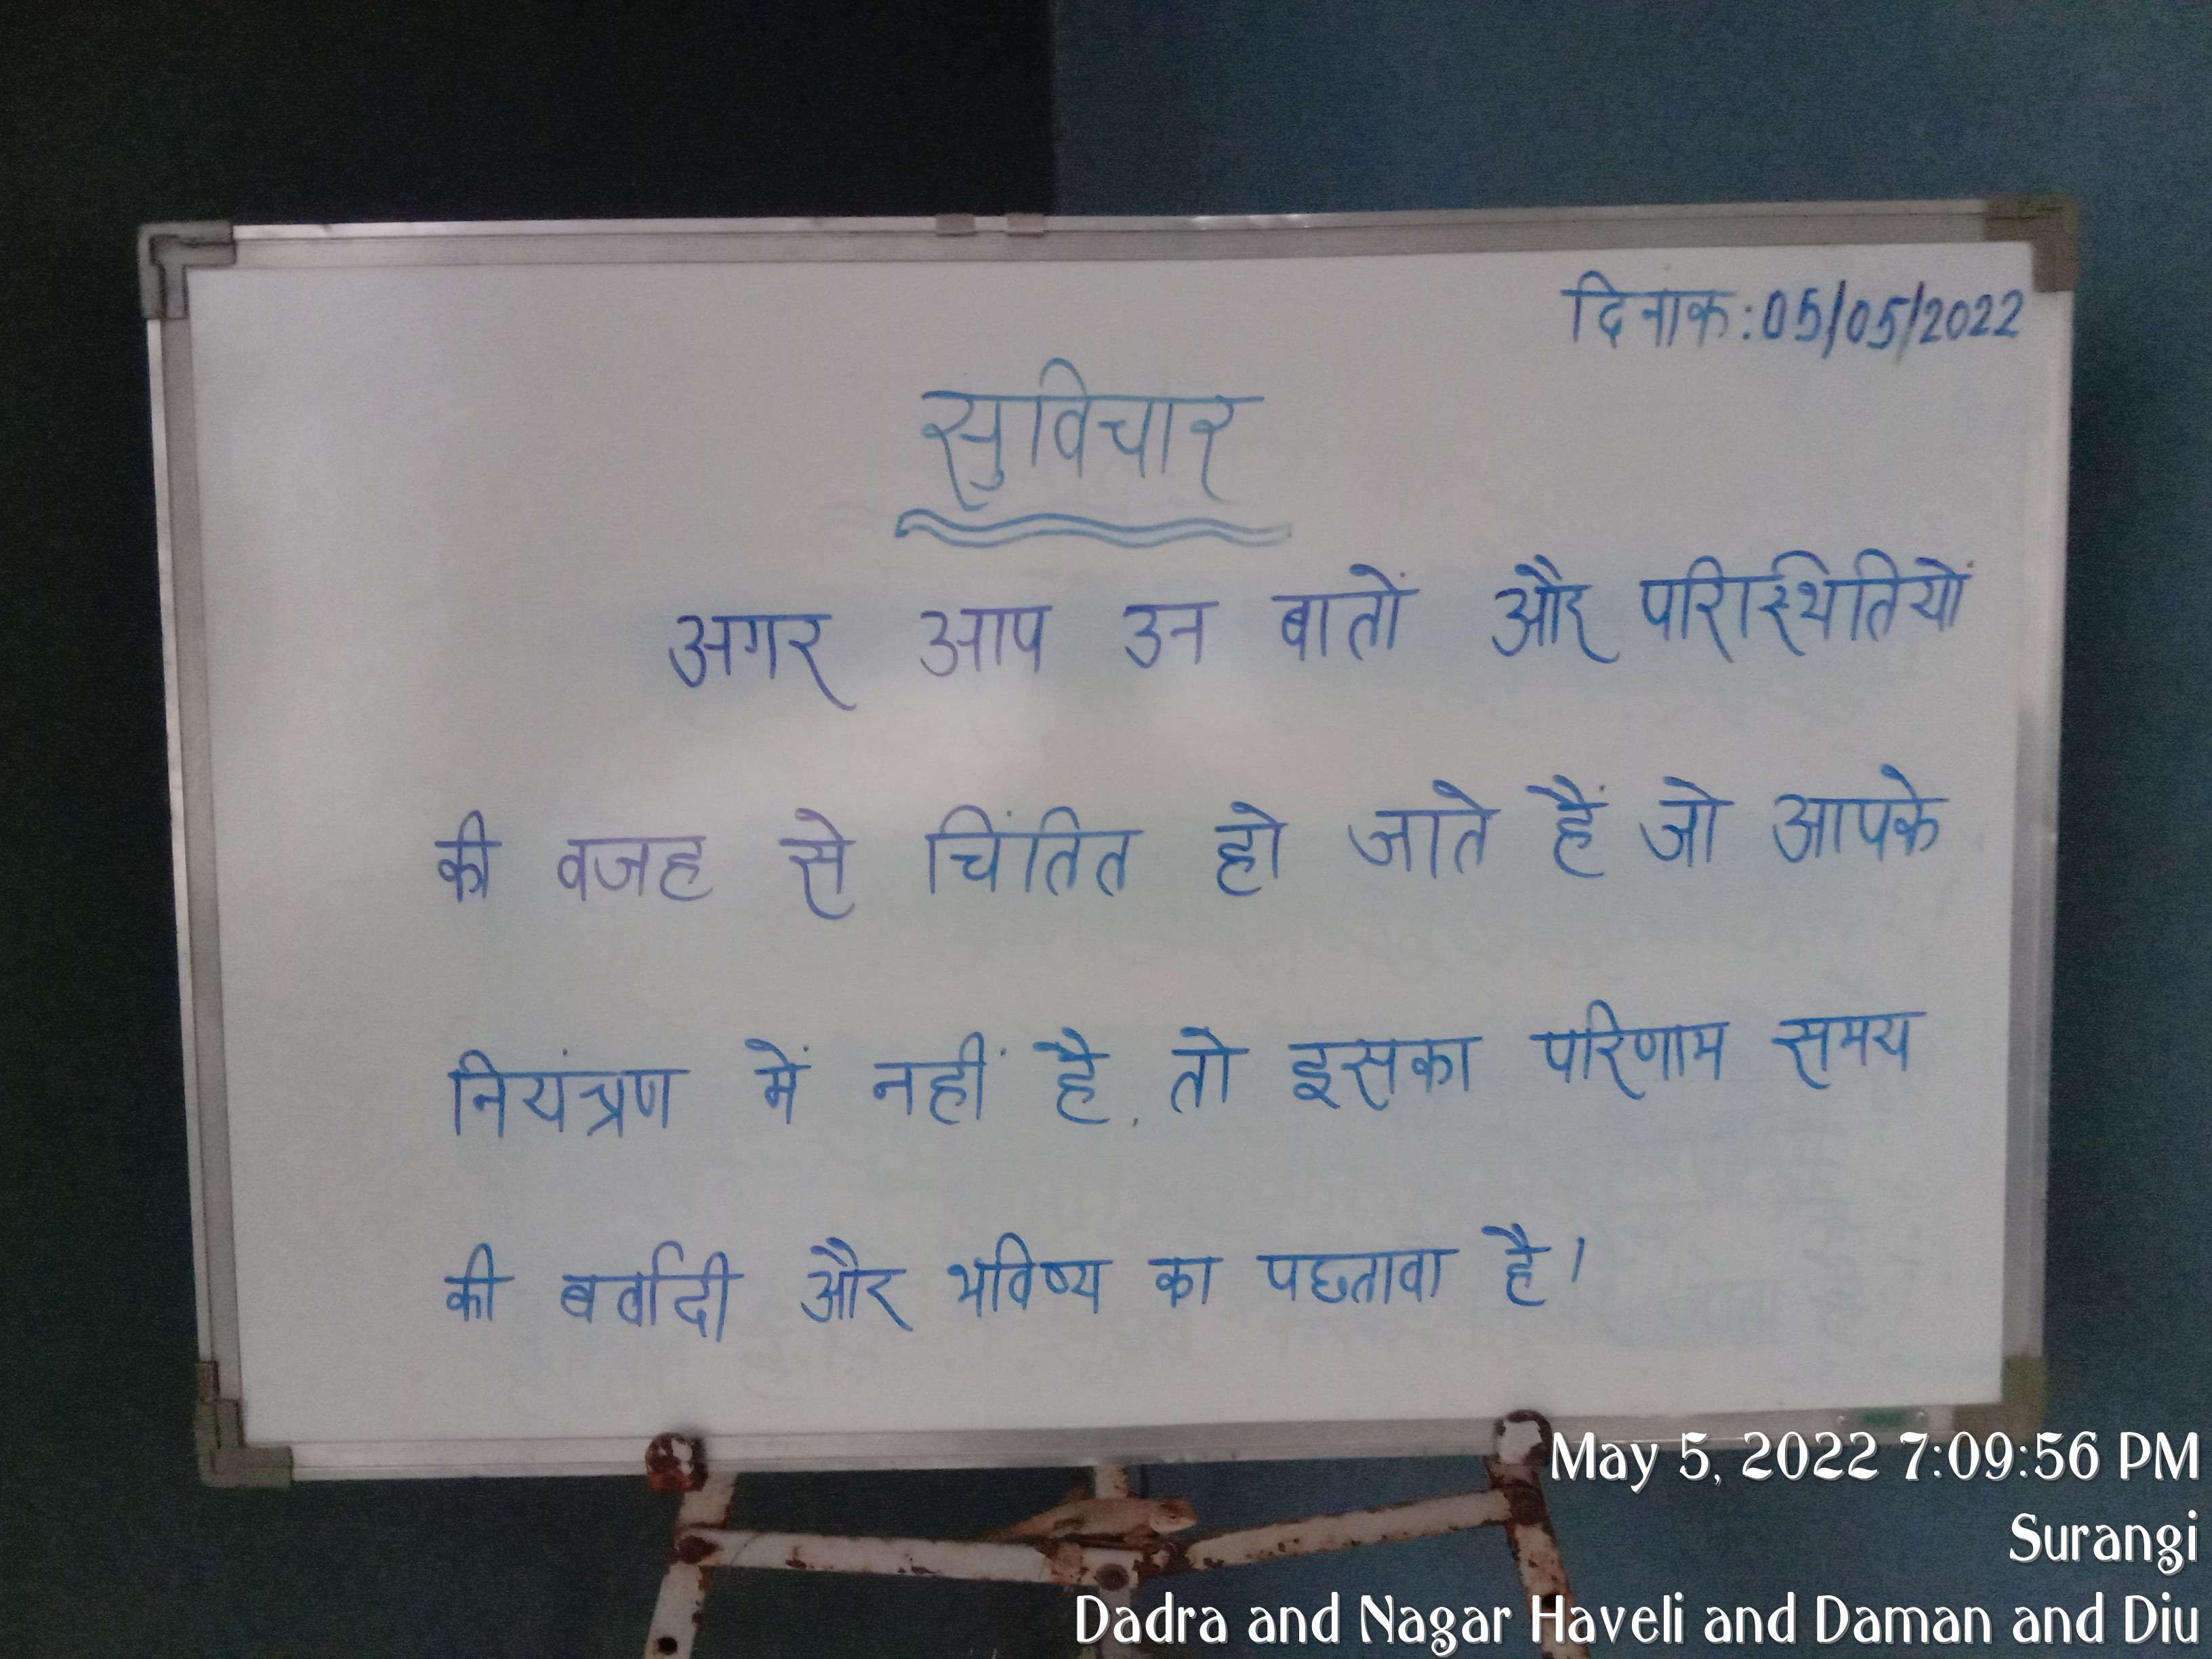 दिनाक:05/05/2022
सुविचार
अगर आप उन बातों और परिस्थितियों
की वजह से चिंतित हो जाते हैं जो आपके
नियंत्रण में नहीं है, तो इसका परिणाम समय
की बर्वादी और भविष्य का पछतावा है।
May 5, 2022 7:09:56 PM
Surangi
Dadra and Nagar Haveli and Daman and Diu